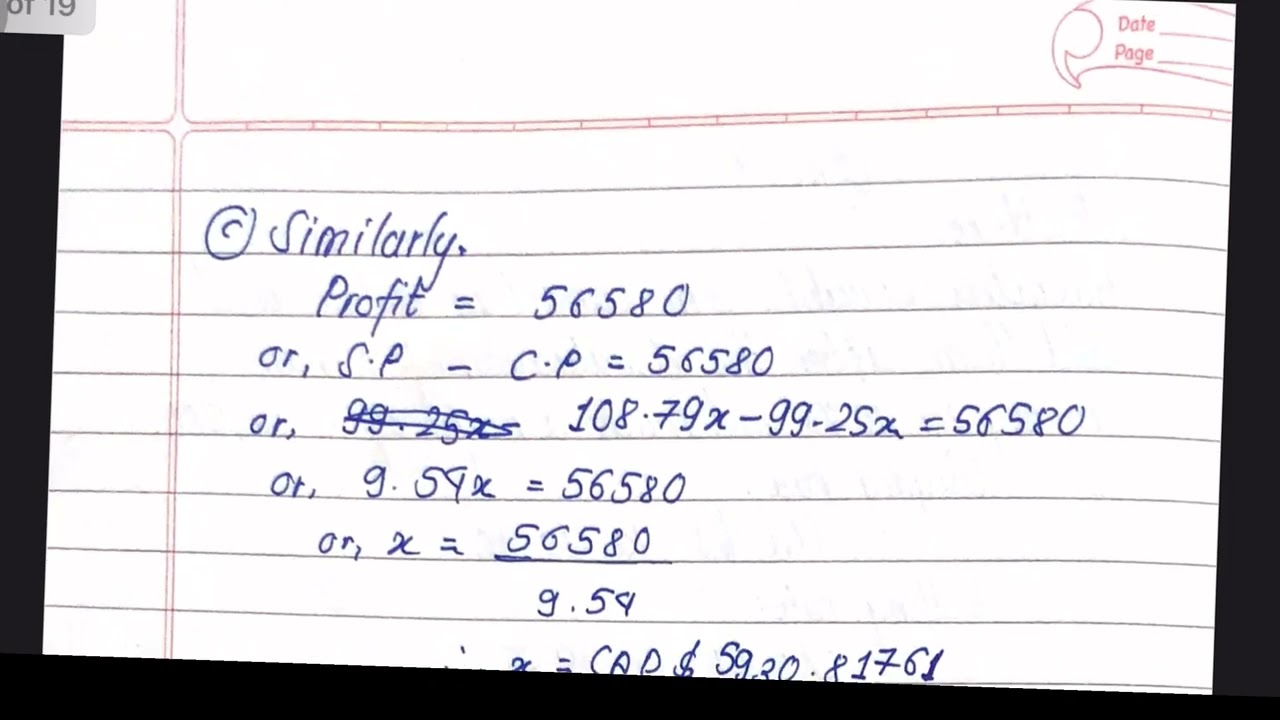 of 19
Date
Page
Ⓒ Similarly.
Profit = 56580
or, S.P - C.P = 56580
or, 99.25x 108.79x - 99.25x = 56580
or, 9.54x = 56580
or, x = 56580
9.54
∴ x = CAD $ 5930.81761